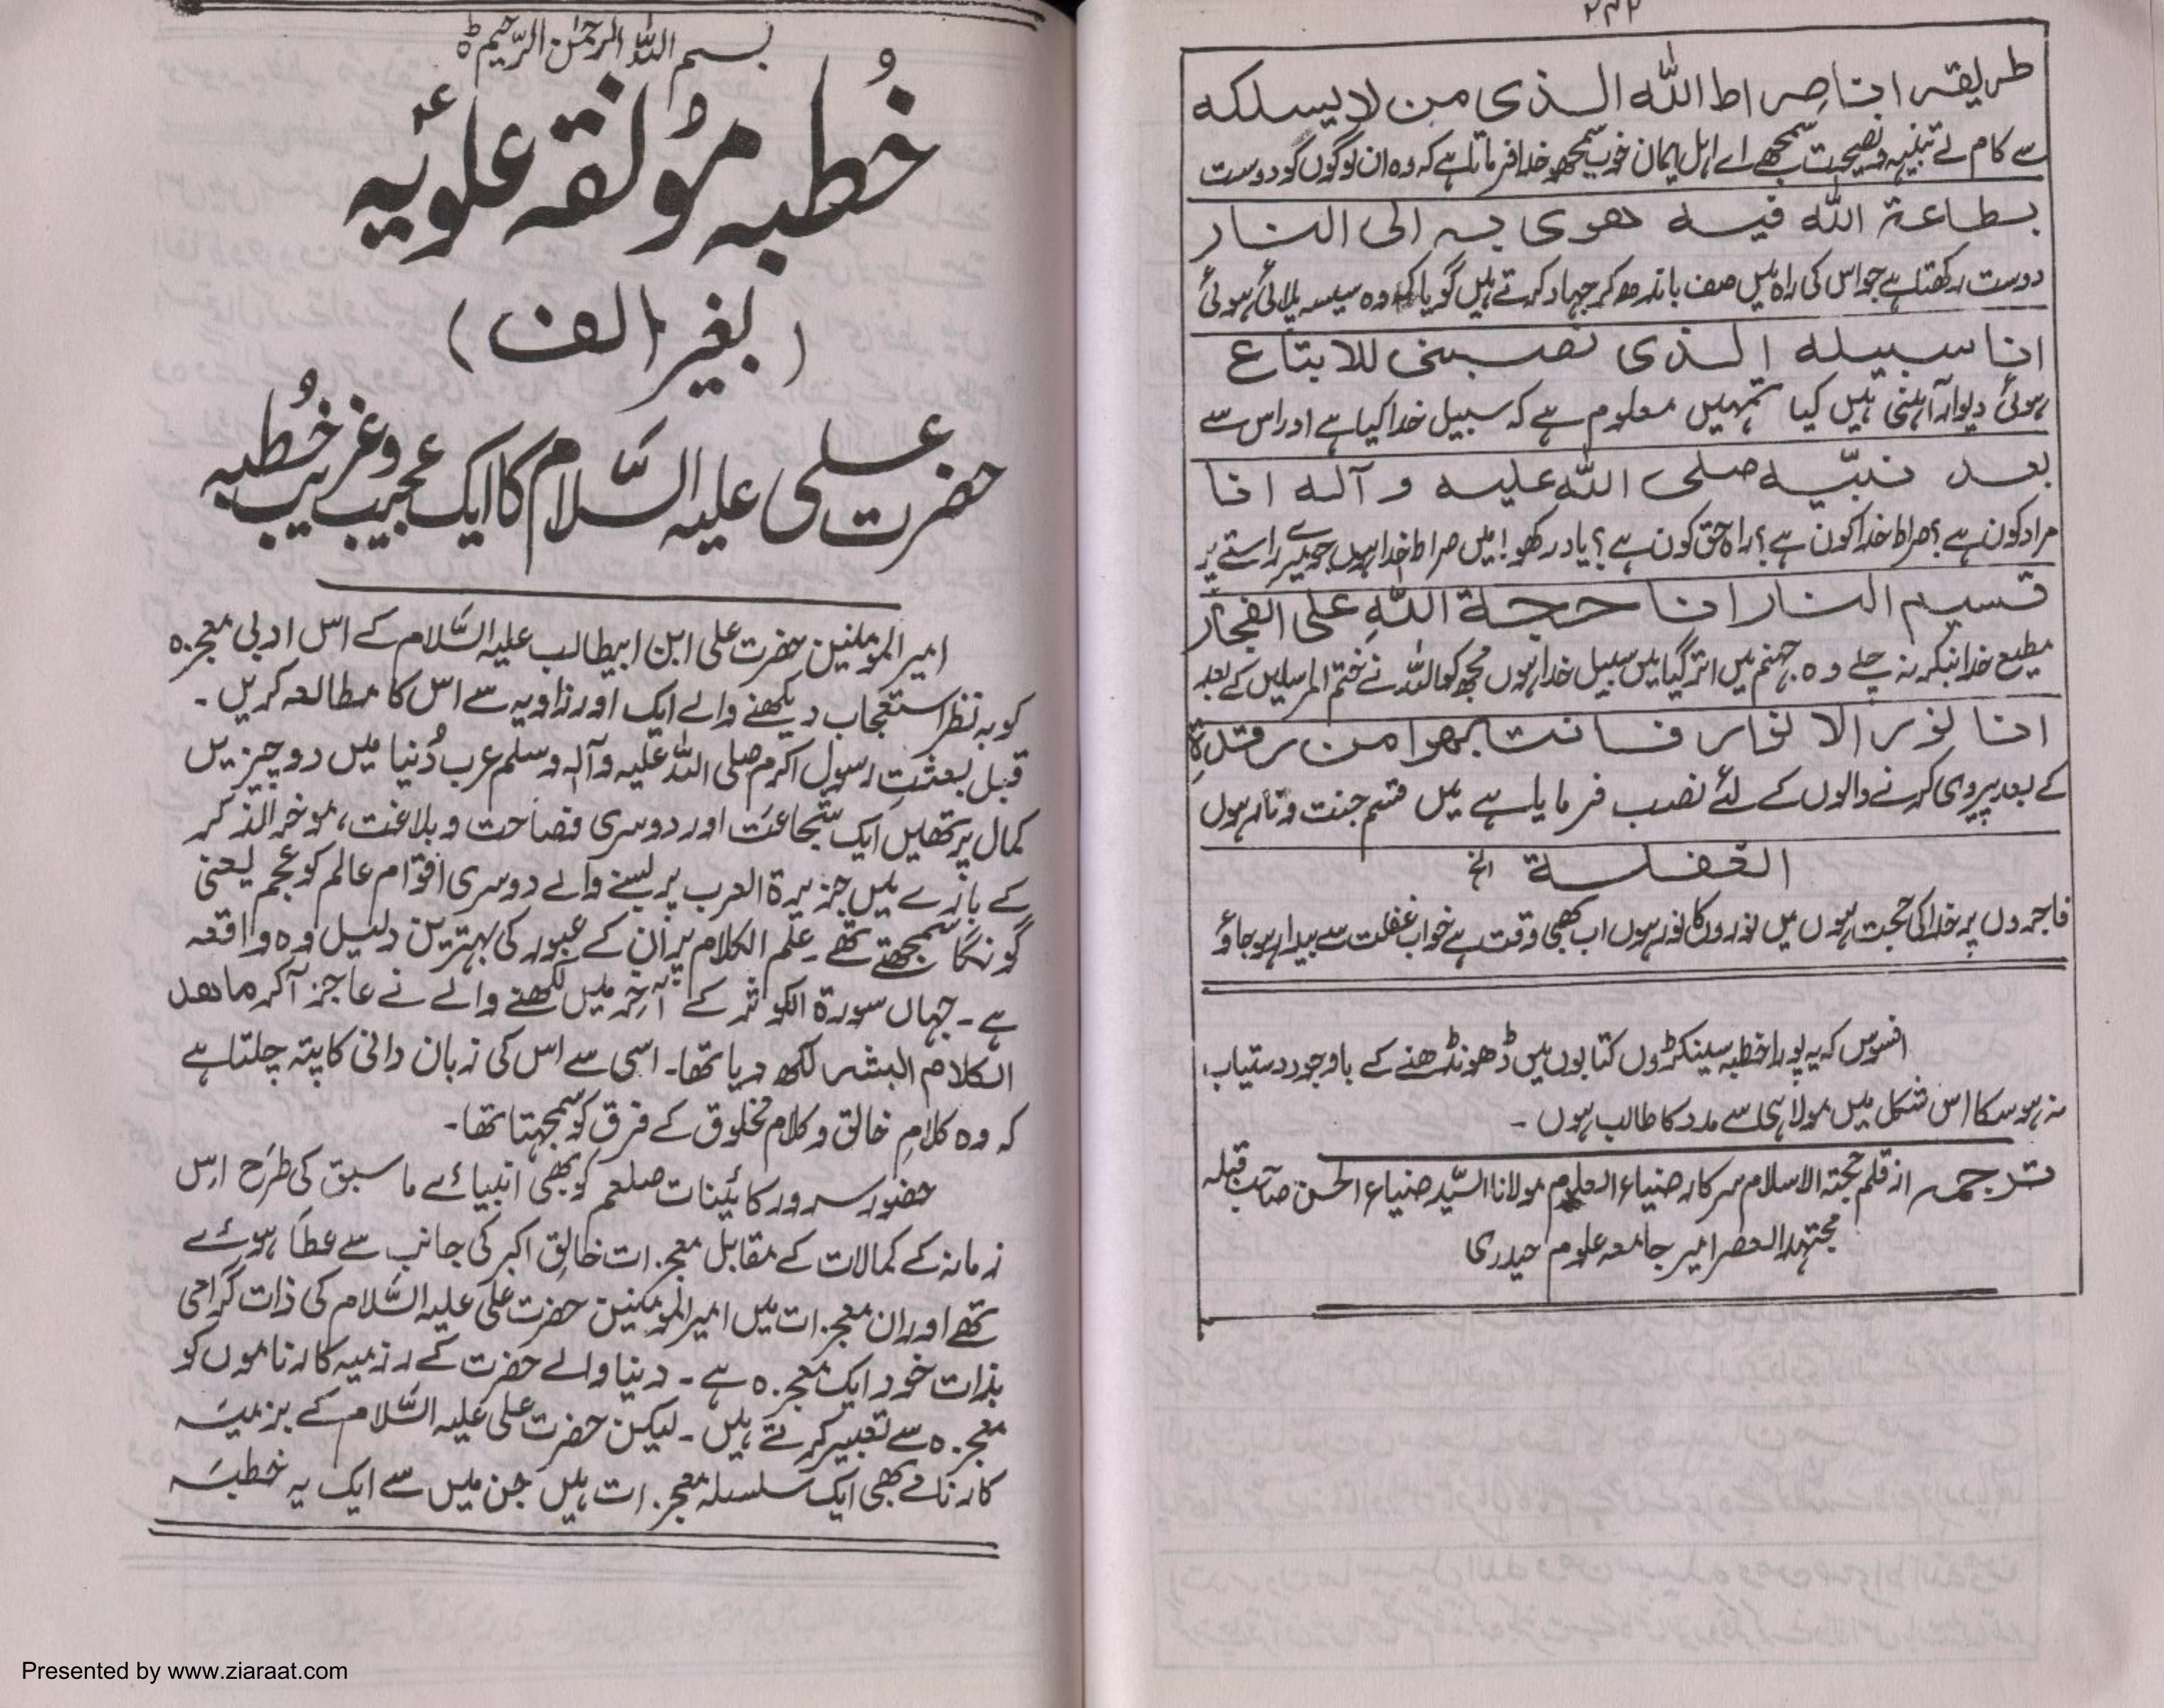 ۲۴۲
طریقہ انا صراط اللہ الذی من لا یسلکہ
سے کام لے تنبیہ و نصیحت سمجھے اے اہل ایمان خوب سمجھو خدا فرماتا ہے کہ وہ ان لوگوں گو دوست
بطاعۃ اللہ فیہ ھوی بہ الی النار
دوست رکھتا ہے جو اس کی راہ میں صف باندھ کر جہاد کرتے ہیں گویا کہ وہ سیسہ پلائی ہوئی
انا سبیلہ الذی نصبنی للابتاع
ہوئی دیوار آہنی ہیں کیا تمہیں معلوم ہے کہ سبیل خدا کیا ہے اور اس سے
بعد نبیّہ صلی اللہ علیہ و آلہ انا
مراد کون ہے؟ صراط خدا کون ہے؟ راہ حق کون ہے؟ یاد رکھو! میں صراط خدا ہوں جو میرے راستے پر
قسیم النار انا حجۃ اللہِ علی الفجار
مطیع خدا بنکر نہ چلے وہ جہنم میں اتر گیا میں سبیل خدا ہوں مجھ کو اللہ نے ختم المرسلین کے بعد
انا نور الا نوار فانتبھوا من رقدۃِ
کے بعد پیروی کرنے والوں کے لئے نصب فرمایا ہے میں قسم جنت و نار ہوں
الغفلۃ الخ
فاجروں پر خدا کی حجت ہوں میں نوروں کا نور ہوں اب بھی وقت ہے خواب غفلت سے بیدار ہو جاؤ
افسوس کہ یہ پورا خطبہ سینکڑوں کتابوں میں ڈھونڈھنے کے باوجود دستیاب
نہ ہو سکا اس شکل میں مولا ہی سے مدد کا طالب ہوں ۔
ترجمہ از قلم حجتہ الاسلام سرکار ضیاء العلوم مولانا السیّد ضیاء الحسن صاحب قبلہ
مجتہد العصر امیر جامعہ علوم حیدری
بسم اللہ الرحمٰن الرّحیم ط
خُطبہ مؤلقہ علویہ
(بغیر الف)
حضرت علی علیہ السّلام کا ایک عجیب و غریب خُطبہ
امیر المومنین حضرت علی ابن ابیطالب علیہ السّلام کے اس ادبی معجزہ
کو بہ نظر استعجاب دیکھنے والے ایک اور زاویہ سے اس کا مطالعہ کریں ۔
قبل بعثتِ رسول اکرم صلی اللہ علیہ و آلہ وسلم عرب دُنیا میں دو چیزیں
کمال پر تھیں ایک شجاعت اور دوسری فصاحت و بلاغت، موخر الذکر
کے بارے میں جزیرۃ العرب پر بسنے والے دوسری اقوام عالم کو عجم یعنی
گونگا سمجھتے تھے ۔ علم الکلام پر ان کے عبور کی بہترین دلیل وہ واقعہ
ہے ۔ جہاں سورۃ الکوثر کے آخر میں لکھنے والے نے عاجز آکر ماھذ
الکلام البشر لکھ دیا تھا ۔ اسی سے اس کی زبان دانی کا پتہ چلتا ہے
کہ وہ کلامِ خالق و کلام مخلوق کے فرق کو سمجہتا تھا ۔
حضور سرور کائینات صلعم کو بھی انبیائے ما سبق کی طرح اس
زمانہ کے کمالات کے مقابل معجزات خالق اکبر کی جانب سے عطا ہوئے
تھے اور ان معجزات میں امیر المومنین حضرت علی علیہ السّلام کی ذات گرامی
بذات خود ایک معجزہ ہے ۔ دنیا والے حضرت کے رزمیہ کارناموں کو
معجزہ سے تعبیر کرتے ہیں ۔ لیکن حضرت علی علیہ السّلام کے بزمیہ
کارنامے بھی ایک سلسلہ معجزات ہیں جن میں سے ایک یہ خطبہ
Presented by www.ziaraat.com